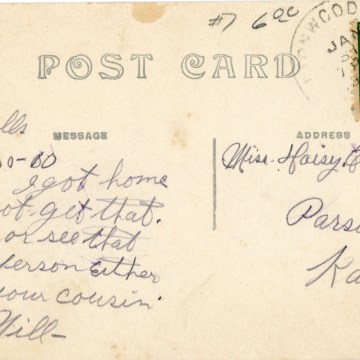 #7 600
ONWOOD
JAN
POST CARD
lls
MESSAGE
ADDRESS
0-00
I got home
ot get that
or see that
person either
your cousin
Will-
Miss. Haisy
Parso
Ka